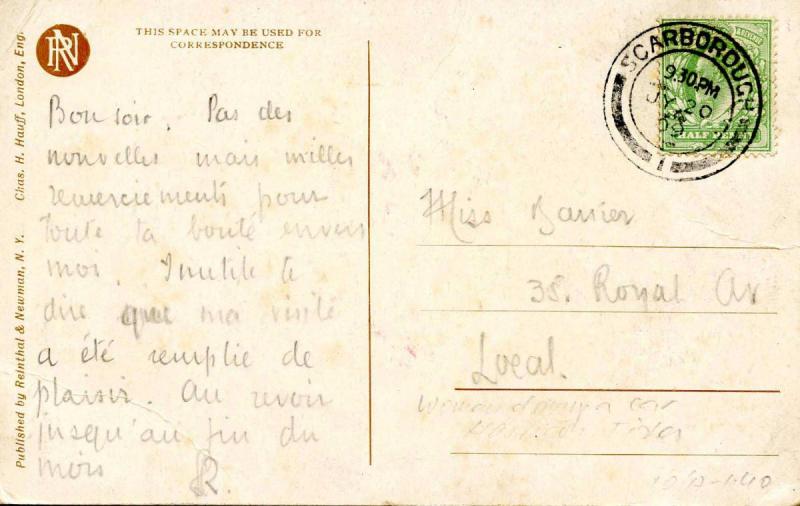 RN
THIS SPACE MAY BE USED FOR
CORRESPONDENCE
Bonsoir. Pas des
nouvelles mais milles
remerciements pour
toute ta bonté envers
moi. Inutile te
dire que ma visite
a été remplie de
plaisir. Au revoir
jusqu'au fin du
mois
R.
Published by Reinthal & Newman, N. Y. Chas. H. Hauff, London, Eng.
SCARBOROUGH
9.30 PM
JY 20
1
HALF PENNY
Miss
38. Royal Av
Local.
Woman driving a car